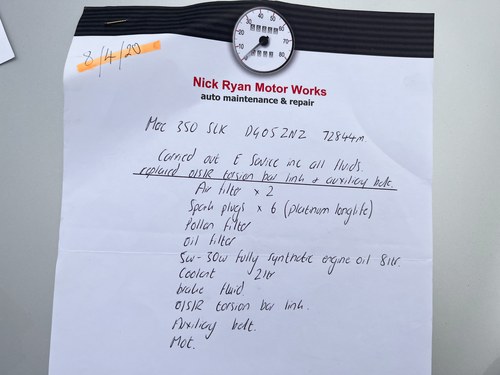 8/4/20
Nick Ryan Motor Works
auto maintenance & repair
Merc 350 SLK D40SZNZ 72844m.
Carried out E Service inc all fluids.
replaced O/S/R torsion bar link & auxiliary belt.
Air filter x 2
Spark plugs x 6 (platinum longlife)
Pollen filter
Oil filter
5w-30w fully synthetic engine oil 8ltr.
Coolant 2ltr
brake fluid
O/S/R torsion bar link.
Auxiliary belt.
Mot.